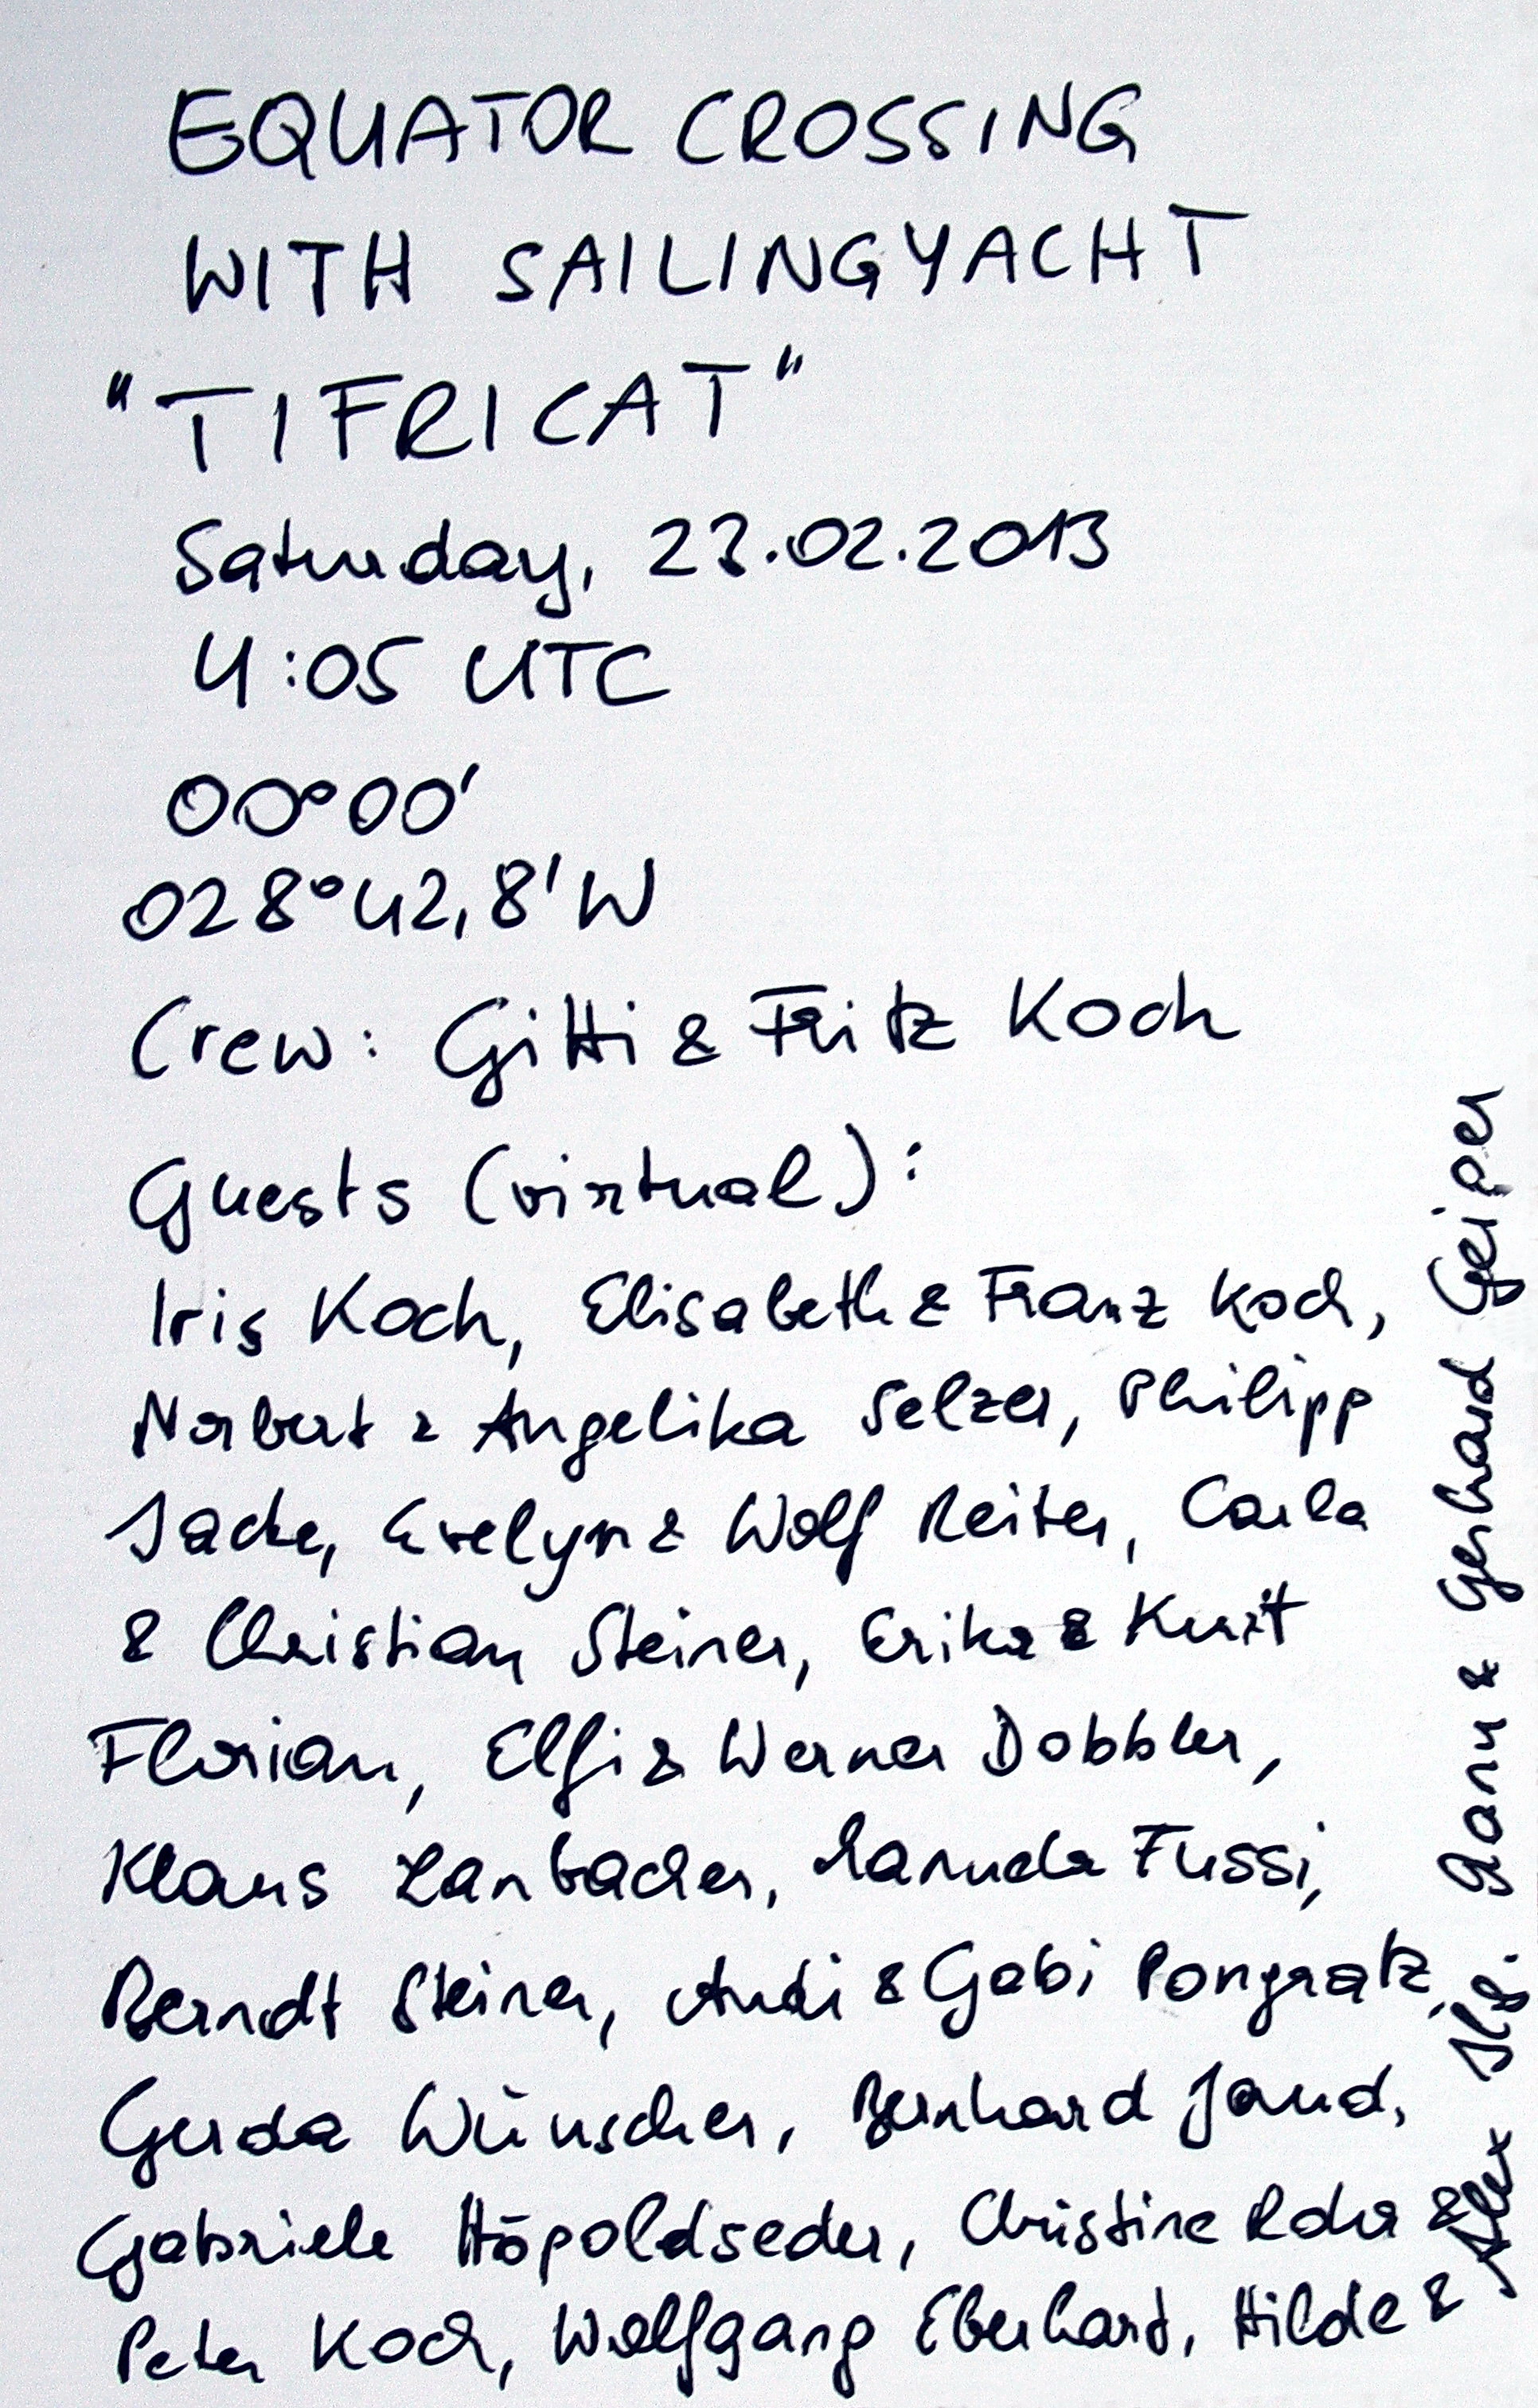 EQUATOR CROSSING
WITH SAILINGYACHT
"TIFRICAT"
Saturday, 23.02.2013
4:05 UTC
00°00'
028°42,8'W
Crew: Gitti & Fritz Koch
Guests (virtual):
Iris Koch, Elisabeth & Franz Koch,
Norbert & Angelika Selzer, Philipp
Jacke, Evelyn & Wolf Reiter, Carla
& Christian Steiner, Erika & Kurt
Florian, Elfi & Werner Dobbler,
Klaus Lanbacher, Manuela Fussi,
Berndt Steiner, Andi & Gabi Pongratz,
Gerda Wünscher, Bernhard Jaud,
Gabriele Höpoldseder, Christine Rohr &
Peter Koch, Wolfgang Eberhart, Hilde &
Alex Ilgi. Romy & Gerhard Geiper